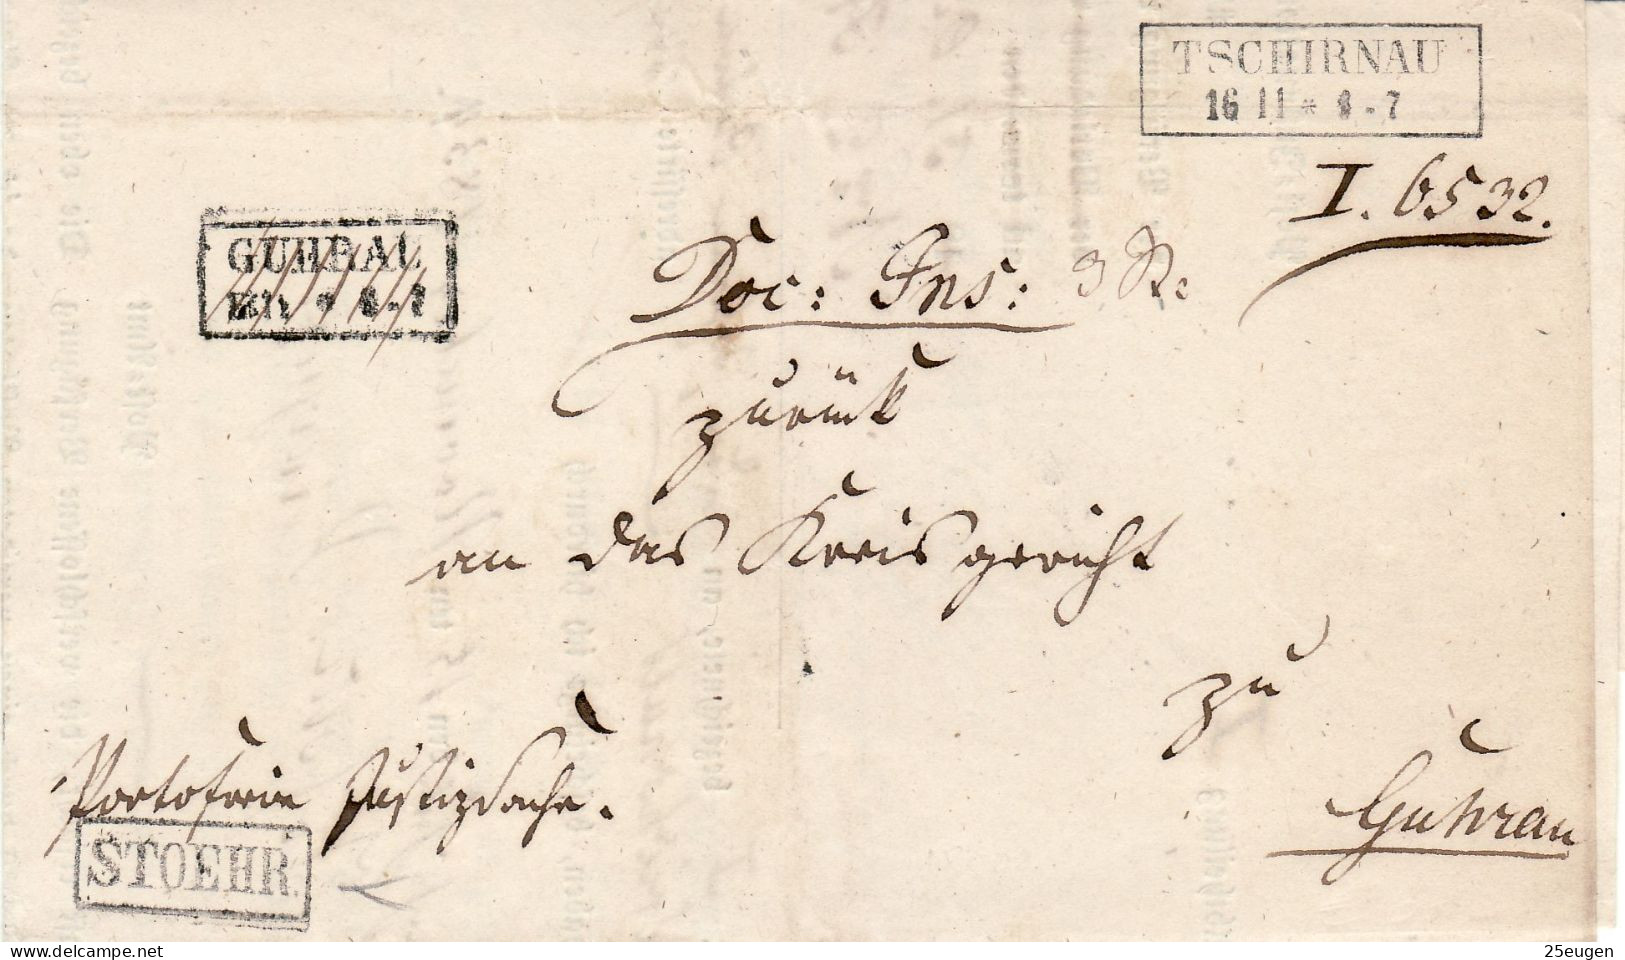 TSCHIRNAU
16 11 * 6-7
I. 6532.
GUHRAU
Doc: Ins:
zurück
an das Kreisgericht
zu
Guhrau
Portofreie Justizsache.
STOEHR
www.delcampe.net
25eugen